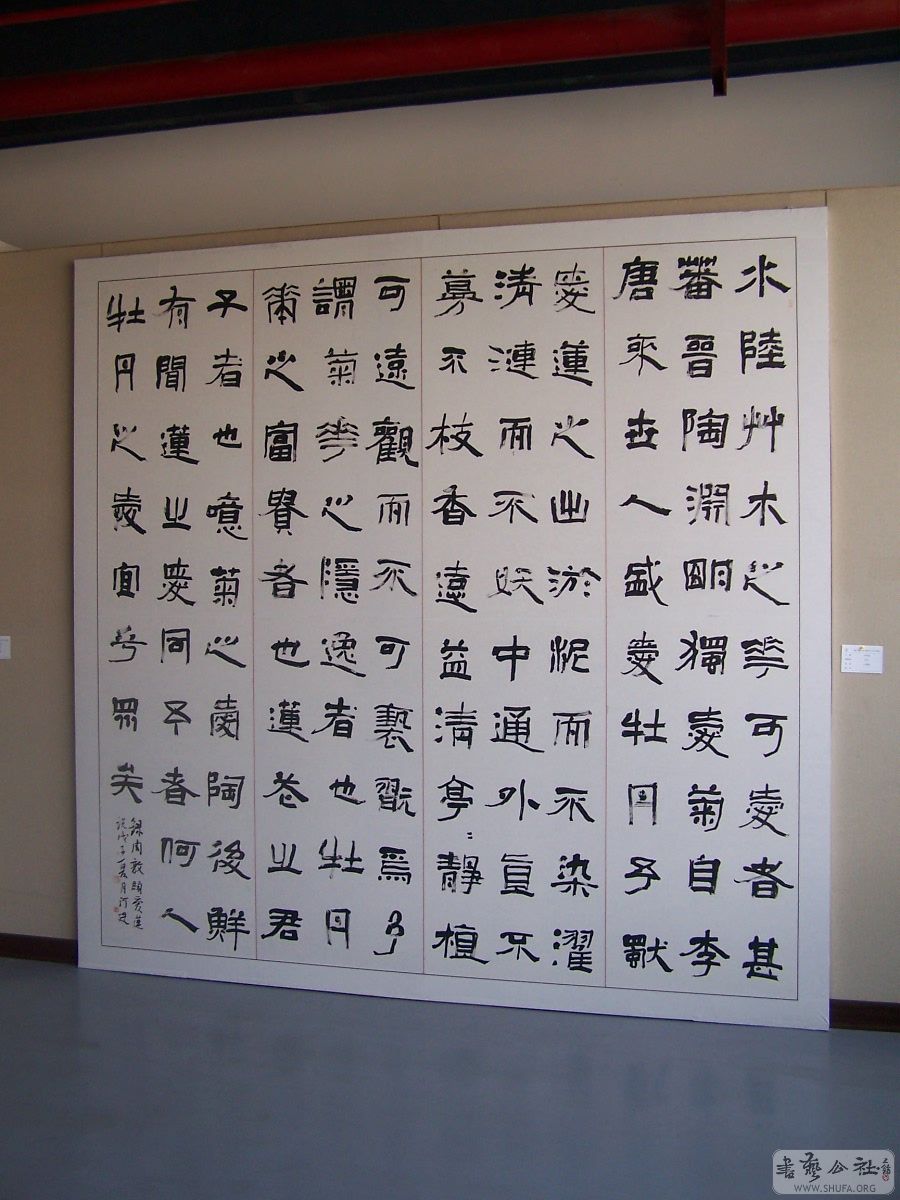 水陸艸木之華可愛者甚
蕃晉陶淵明獨愛菊自李
唐來世人盛愛牡丹予獨
愛蓮之出淤泥而不染濯
清漣而不妖中通外直不
蔓不枝香遠益清亭〻靜植
可遠觀而不可褻翫焉予
謂菊華之隱逸者也牡丹
華之富貴者也蓮花之君
子者也噫菊之愛陶後鮮
有聞蓮之愛同予者何人
牡丹之愛宜乎眾矣
錄周敦頤愛蓮
說戊子夏月
書藝公社
WWW.SHUFA.ORG